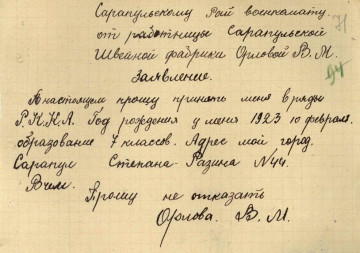 Сарапульскому Рай военкомату 71
от работницы Сарапульской
Швейной фабрики Орловой В. М. 94
Заявление.
В настоящем прошу принять меня в ряды
Р.К.К.А. Год рождения у меня 1923 10 февраля.
образование 7 классов. Адрес мой город.
Сарапул Степана-Разина N44.
В чем.
Прошу не отказать
Орлова. В. М.